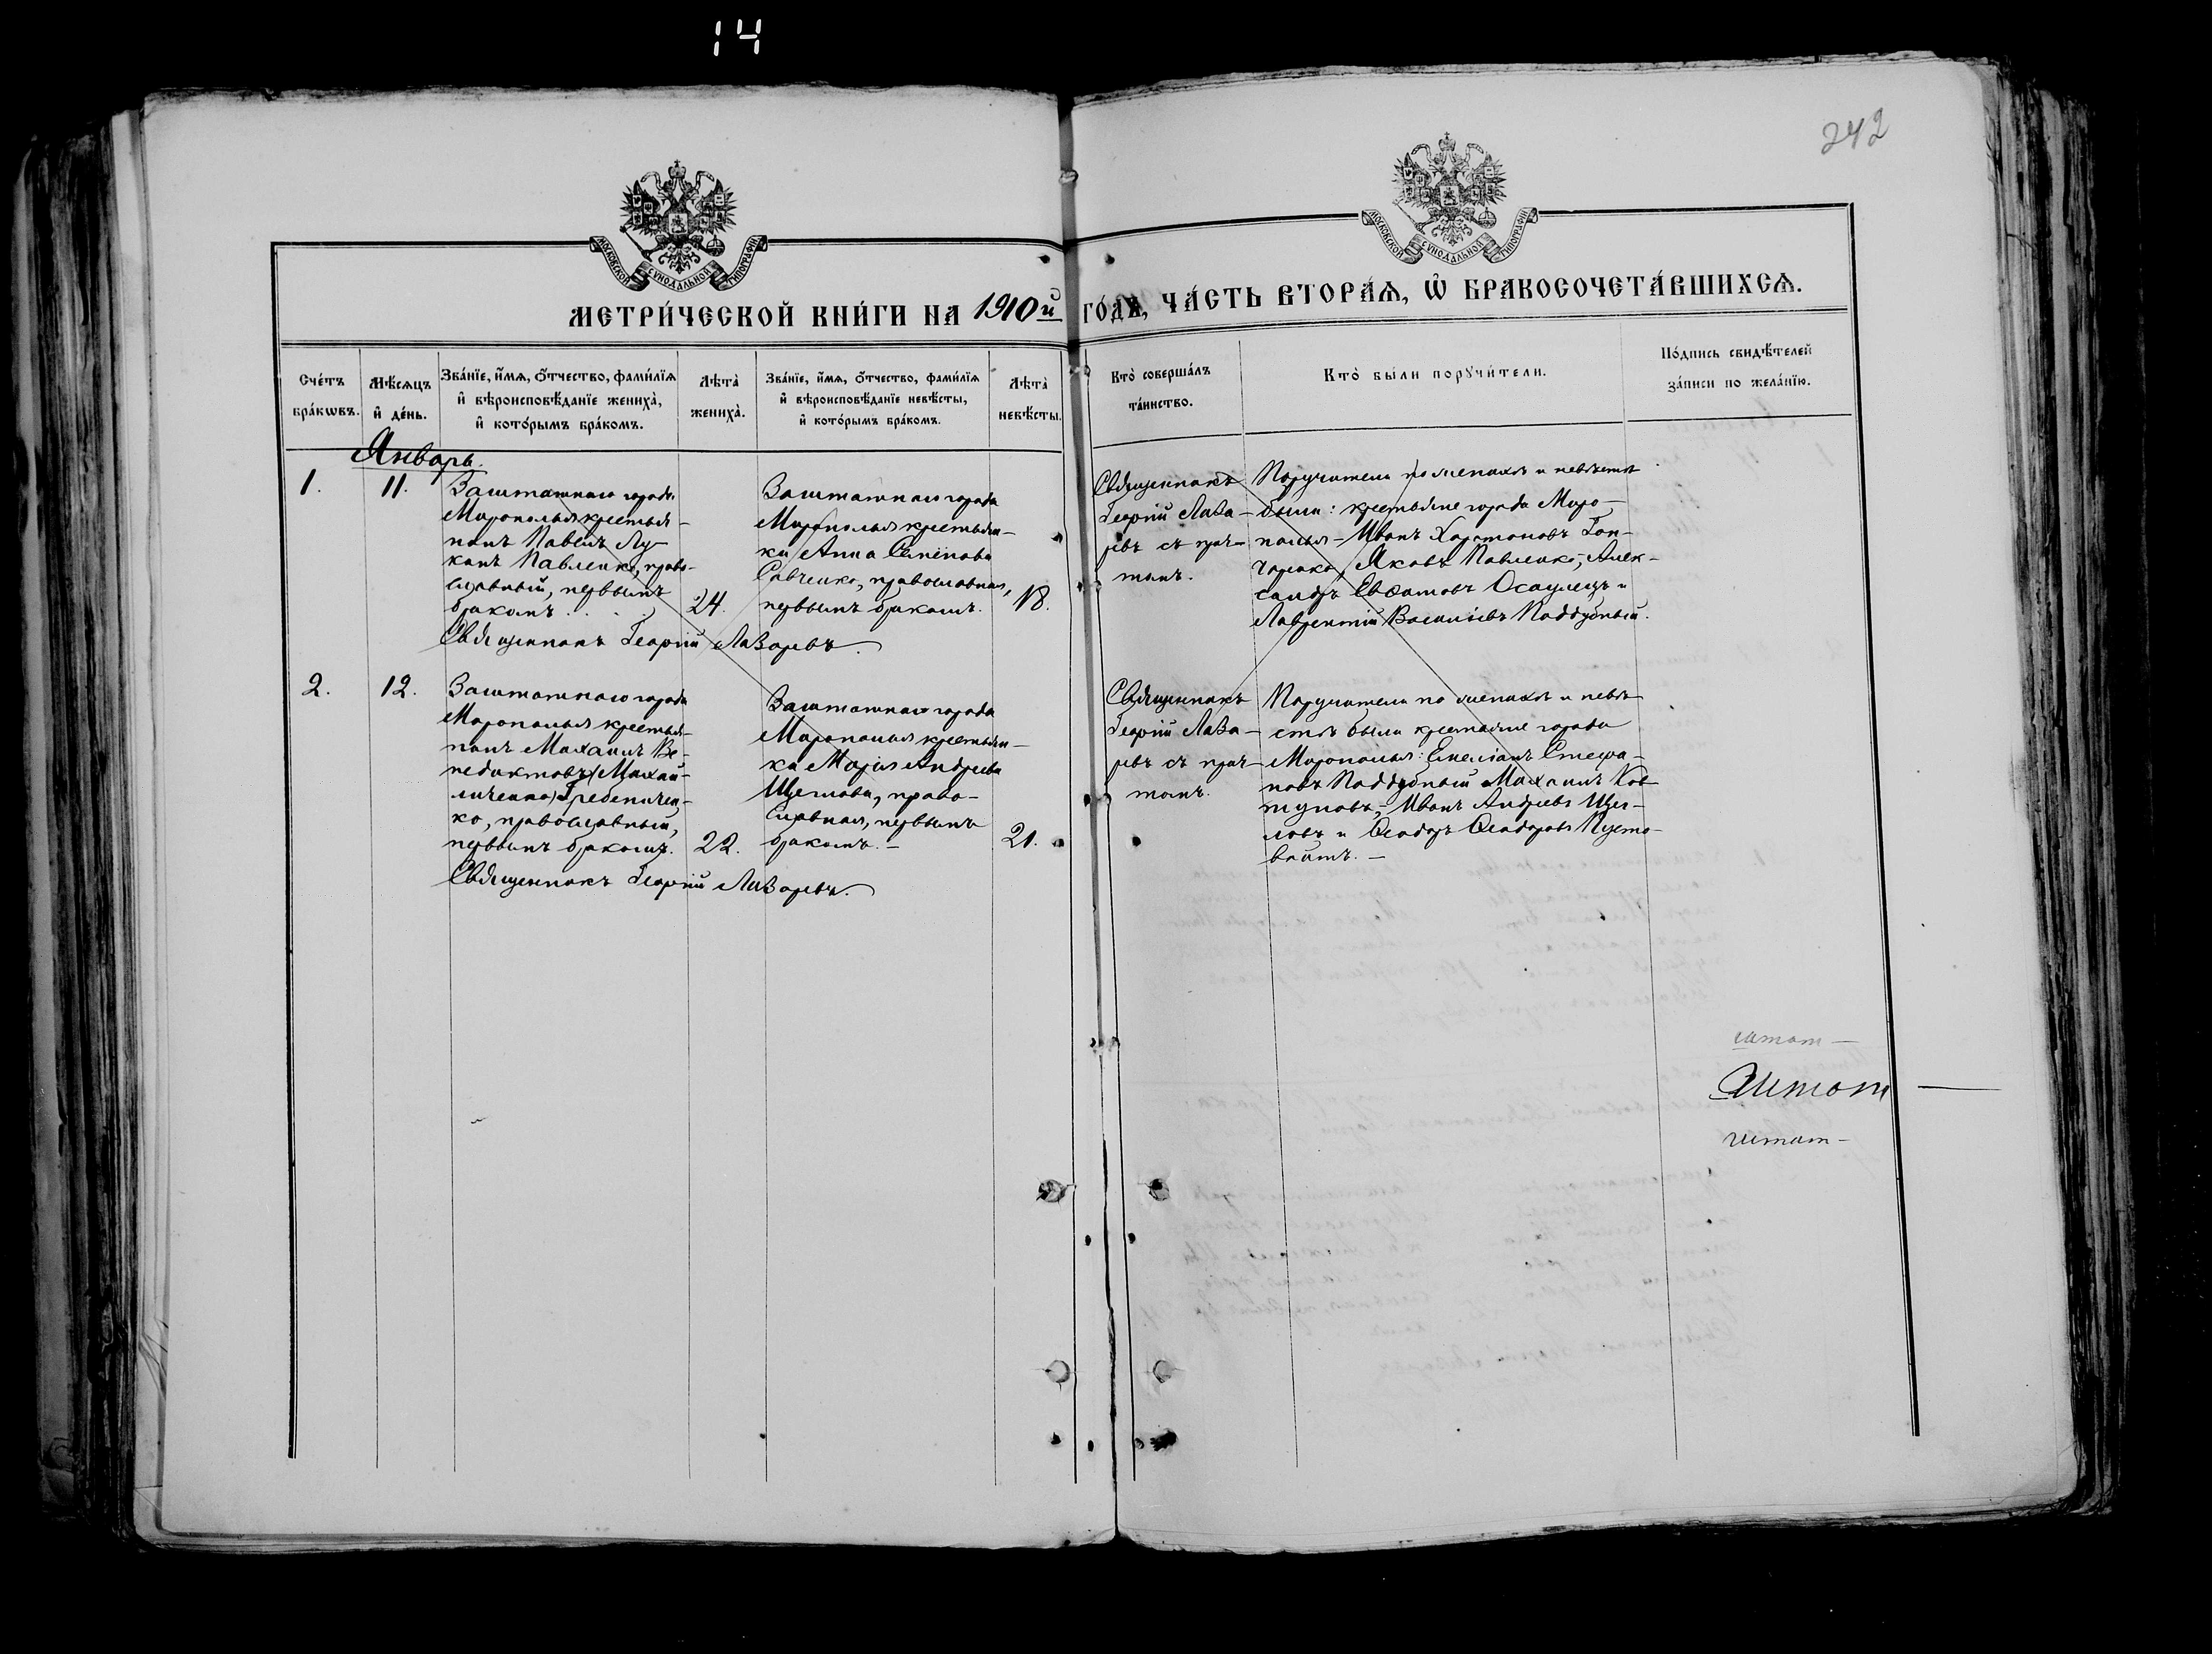 14
242
МОСКОВСКОЙ СѴНОДАЛЬНОЙ ТИПОГРАФІИ
МОСКОВСКОЙ СѴНОДАЛЬНОЙ ТИПОГРАФІИ
МЕТРИ́ЧЕСКОЙ КНИ́ГИ НА 1910й ГО́ДЪ, ЧА́СТЬ ВТОРА́Ѧ, Ѡ҆ БРАКОСОЧЕТА́ВШИХСѦ.
Сче́тъ
бра́кѡвъ.
Мѣ́сѧцъ
и҆ де́нь.
Зва́нїе, и҆́мѧ, ѻ҆́тчество, фами́лїѧ
и҆ вѣроисповѣ́данїе жениха̀,
и҆ кото́рымъ бра́комъ.
Лѣта̀
жениха̀.
Зва́нїе, и҆́мѧ, ѻ҆́тчество, фами́лїѧ
и҆ вѣроисповѣ́данїе невѣ́сты,
и҆ кото́рымъ бра́комъ.
Лѣта̀
невѣ́сты.
Кто̀ соверша́лъ
та́инство.
Кто̀ бы́ли порꙋчи́тели.
По́дпись свидѣ́телей
за́писи по жела́нїю.
Январь.
1.
11.
Заштатнаго города
Мирополья крестья-
нинъ Павелъ Лу-
кинъ Павленко, право-
славный, первымъ
бракомъ . . . .
24.
Заштатнаго города
Мирополья крестьян-
ка Анна Семенова
Савченко, православная,
первымъ бракомъ.
18.
Священникъ
Георгій Лаза-
ревъ съ прич-
томъ.
Поручители по женихѣ и невѣстѣ
были: крестьяне города Миро-
полья - Иванъ Харитоновъ Гон-
чаренко, Яковъ Павленко, Алек-
сандръ Осаулецъ и
Лаврентій Васильевъ Поддубный.
Священникъ Георгій Лазаревъ.
2.
12.
Заштатнаго города
Мирополья крестья-
нинъ Михаилъ Ве-
недиктовъ (Михай-
личенко) Гребениченко-
ко, православный,
первымъ бракомъ.
22.
Заштатнаго города
Мирополья крестьян-
ка Марія Андреева
Щеглова, право-
славная, первымъ
бракомъ. -
21.
Священникъ
Георгій Лаза-
ревъ съ прич-
томъ.
Поручители по женихѣ и невѣ-
стѣ были крестьяне города
Мирополья: Емеліанъ Стефа-
новъ Поддубный Михаилъ Ков-
туновъ, - Иванъ Андреевъ Щег-
ловъ и Ѳеодоръ Ѳеодоровъ Пусто-
войтъ. -
Священникъ Георгій Лазаревъ.
штат -
штат -